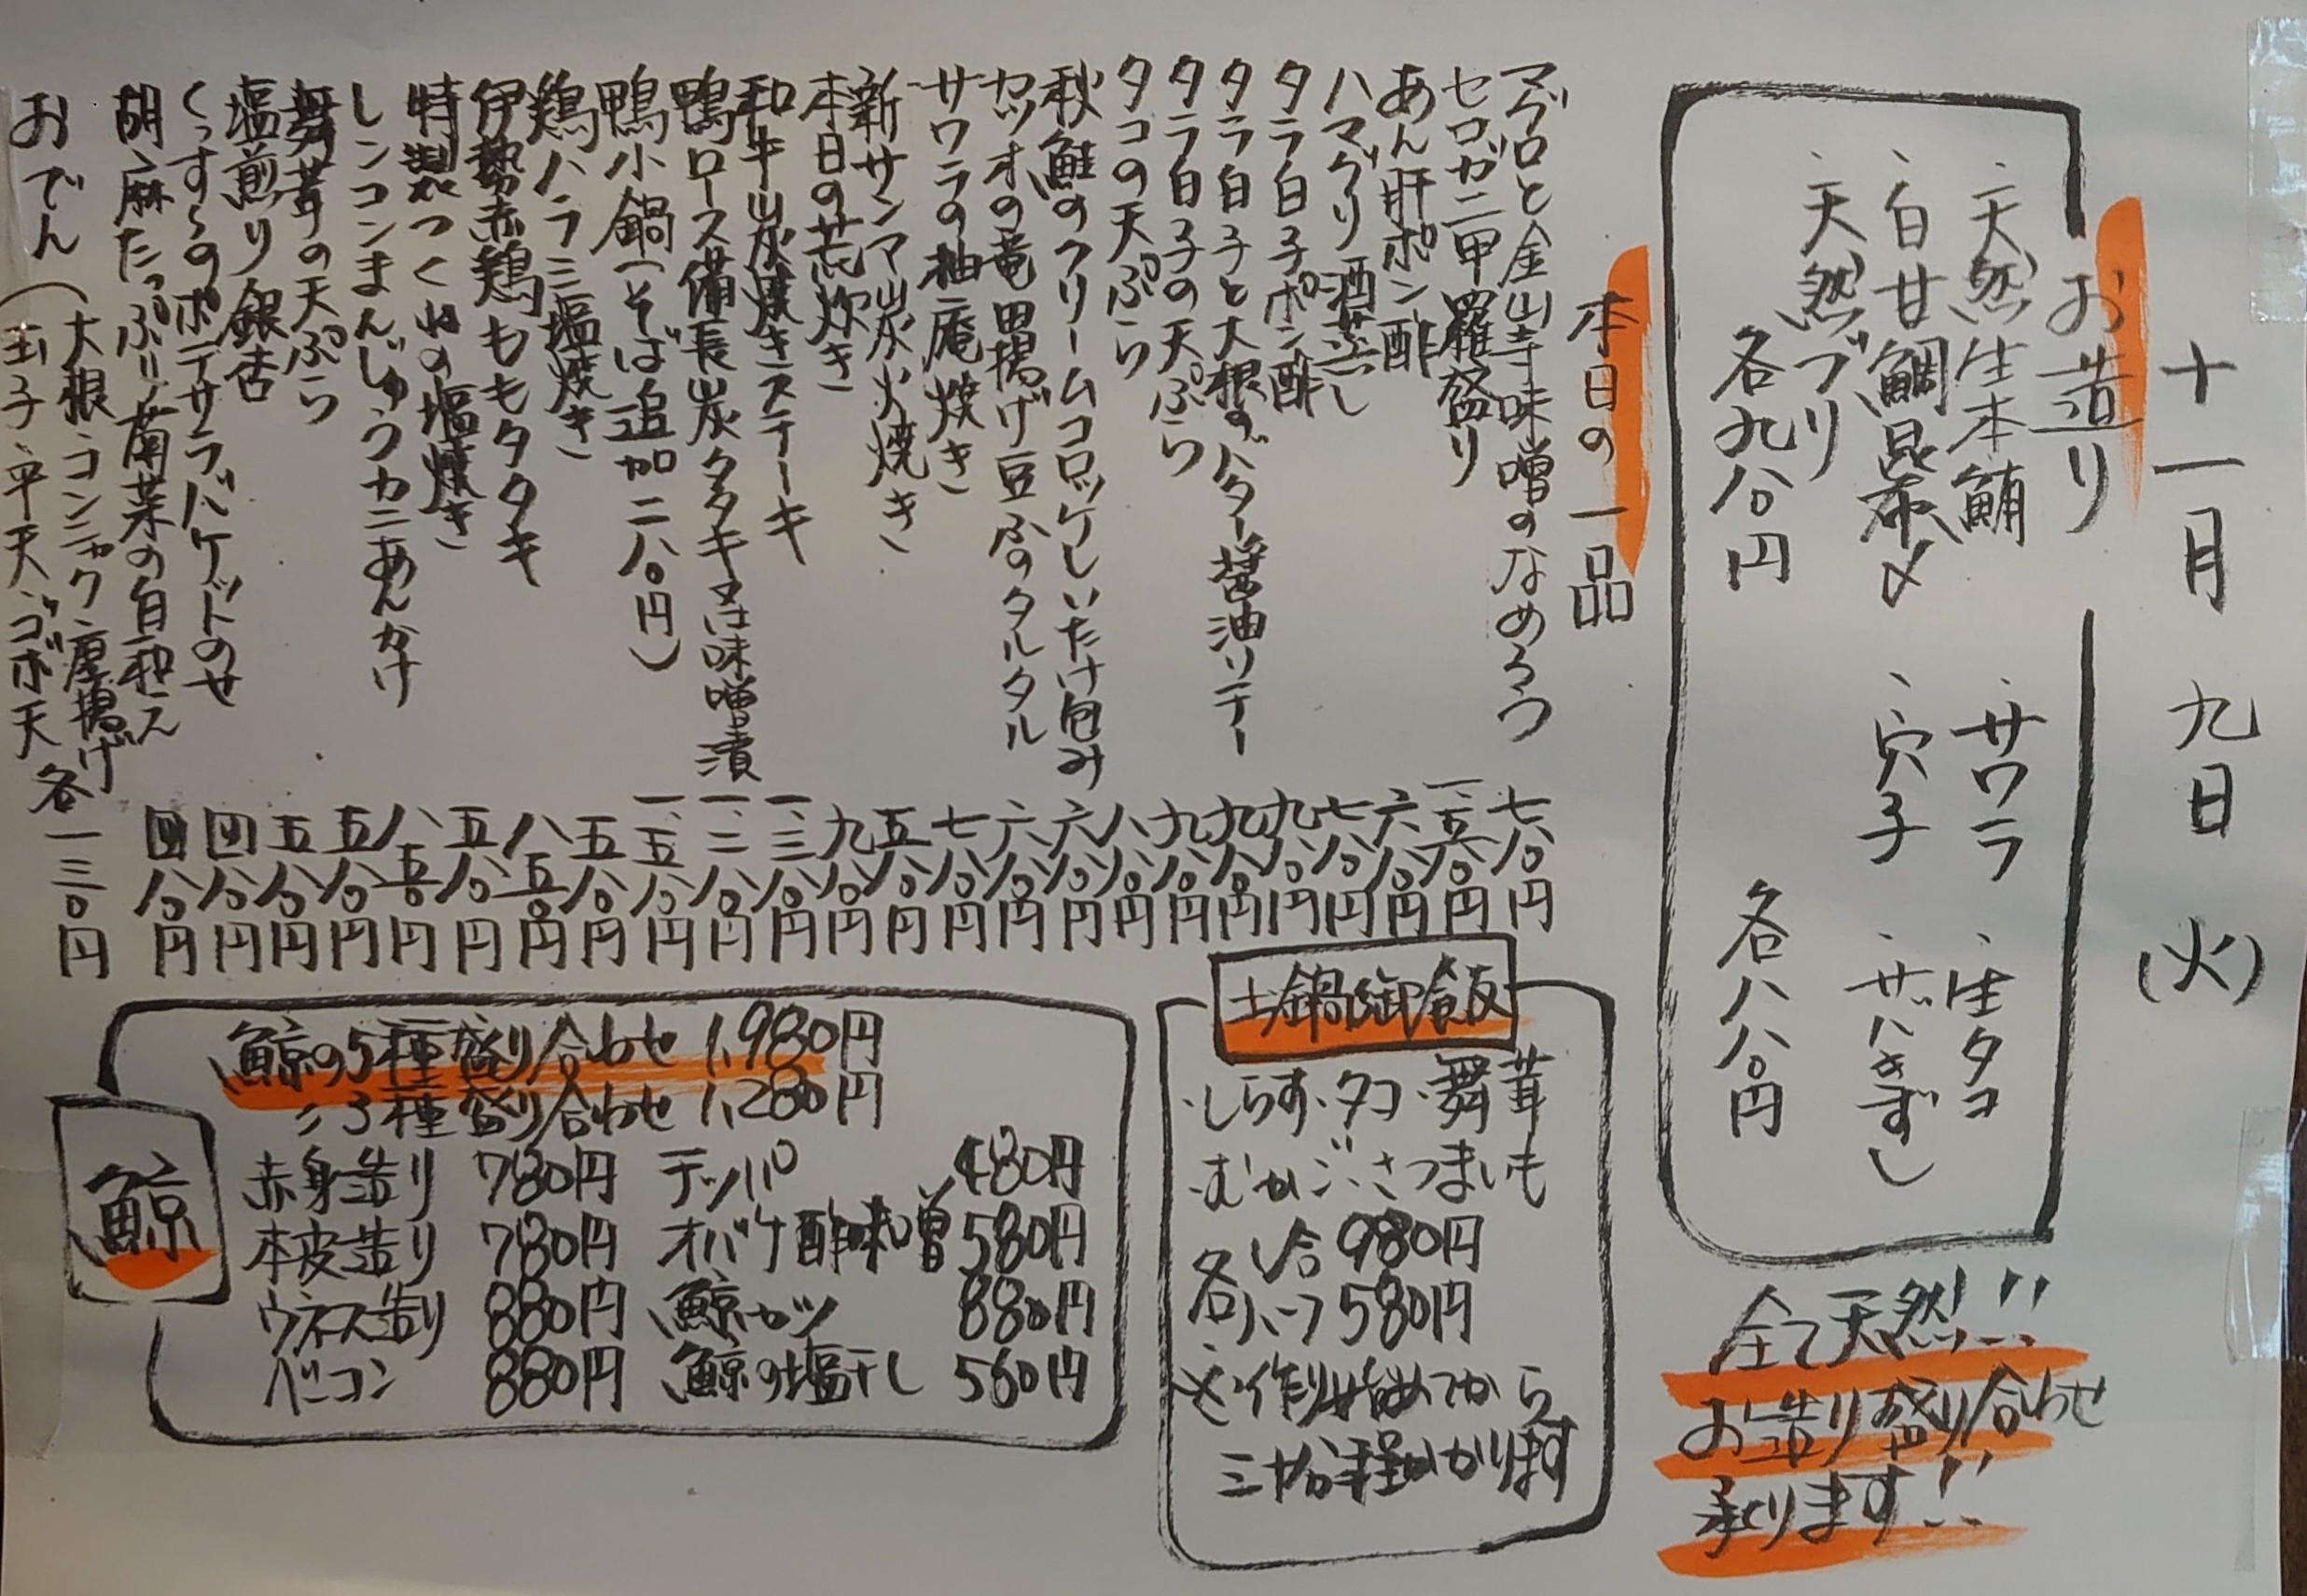 十一月九日(火)
お造り
、天然生本鮪 、サワラ 、生タコ
、白甘鯛昆布〆 、穴子 、サバきずし
、天然ブリ
各九八〇円 各八八〇円
全て天然!!
お造り盛り合わせ
承ります!!
本日の一品
マグロと金山寺味噌のなめろう 七八〇円
セロガニ甲羅盛り 一、五八〇円
あん肝ポン酢 六八〇円
ハマグリ酒蒸し 七八〇円
タラ白子ポン酢 九八〇円
タラ白子と大根のバター醤油ソテー 九八〇円
タラ白子の天ぷら 九八〇円
タコの天ぷら 八八〇円
秋鮭のクリームコロッケしいたけ包み 六八〇円
カツオの竜田揚げ豆ふのタルタル 六八〇円
サワラの柚庵焼き 七八〇円
新サンマ炭火焼き 五八〇円
本日の荒炊き 九八〇円
和牛炭焼きステーキ 一、三八〇円
鴨ロース備長炭タタキ又は味噌漬 一、二八〇円
鴨小鍋(そば追加二八〇円) 一、五八〇円
鶏ハラミ塩焼き 五八〇円
伊勢赤鶏ももタタキ 八五〇円
特製つくねの塩焼き 五八〇円
レンコンまんじゅうカニあんかけ 八五〇円
舞茸の天ぷら 五八〇円
塩煎り銀杏 五八〇円
くっすゞのポテサラバケットのせ 四八〇円
胡麻たっぷり菊菜の白和え 四八〇円
おでん(大根、コンニャク、厚揚げ
玉子、平天、ゴボ天 各一三〇円
土鍋御飯
・しらす・タコ・舞茸
・むかご・さつまいも
各 1合 980円
各ハーフ 580円
※作り始めてから
三十分程かかります
鯨
鯨の5種盛り合わせ 1,980円
〃3種盛り合わせ 1,280円
赤身造り 780円 テッパ 480円
本皮造り 780円 オバケ酢味噌 580円
ウネス造り 880円 鯨カツ 880円
ベーコン 880円 鯨の塩干し 560円